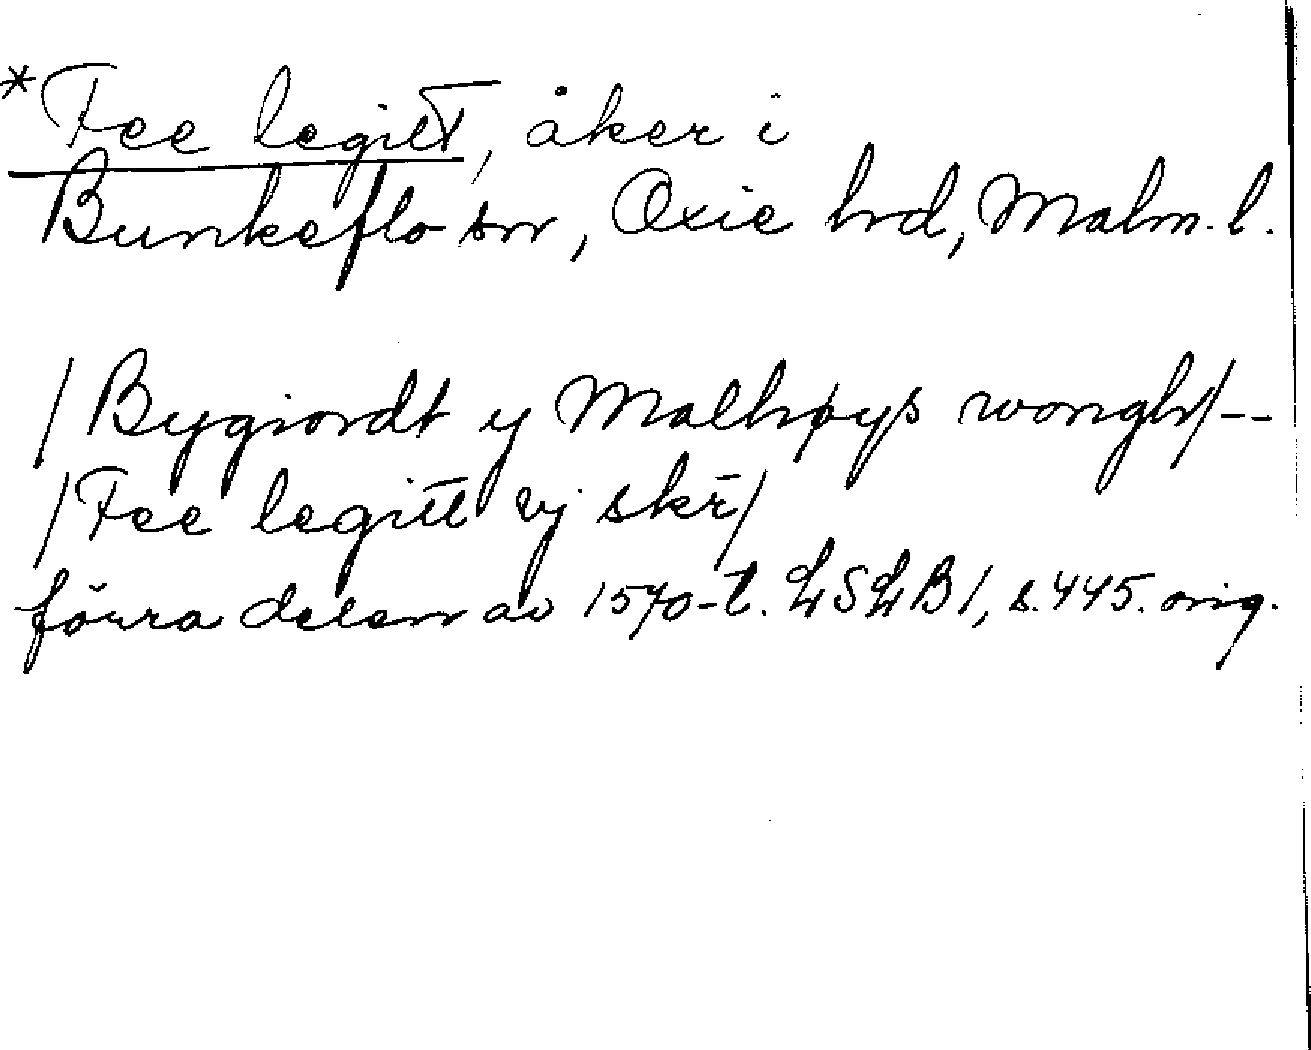 *Fee legitt, åker i
Bunkeflo sn, Oxie hd, Malm. l.
/Bygiordt y Malhøys wongh/--
/Fee legitt vj skr̄/
förra delen av 1570-t. LSLB1, s. 445. orig.